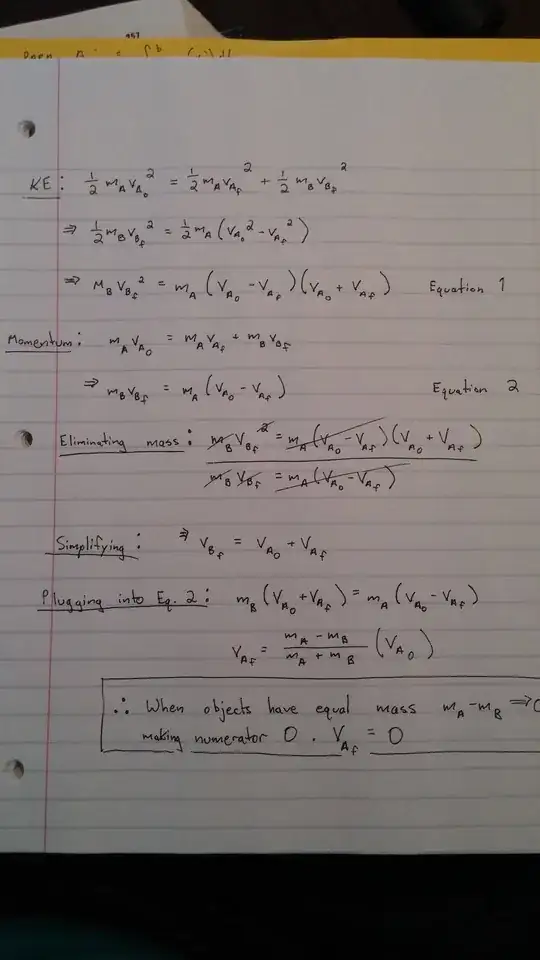 957
KE: 1/2 m_A V_A₀² = 1/2 m_A V_Af² + 1/2 m_B V_Bf²
⇒ 1/2 m_B V_Bf² = 1/2 m_A (V_A₀² - V_Af²)
⇒ M_B V_Bf² = m_A (V_A₀ - V_Af)(V_A₀ + V_Af) Equation 1
Momentum: m_A V_A₀ = m_A V_Af + m_B V_Bf
⇒ m_B V_Bf = m_A (V_A₀ - V_Af) Equation 2
Eliminating mass: m_B V_Bf² = m_A (V_A₀ - V_Af)(V_A₀ + V_Af)
m_B V_Bf = m_A (V_A₀ - V_Af)
Simplifying: ⇒ V_Bf = V_A₀ + V_Af
Plugging into Eq. 2: m_B (V_A₀ + V_Af) = m_A (V_A₀ - V_Af)
V_Af = (m_A - m_B)/(m_A + m_B) (V_A₀)
∴ When objects have equal mass m_A - m_B ⇒ 0
making numerator 0. V_Af = 0